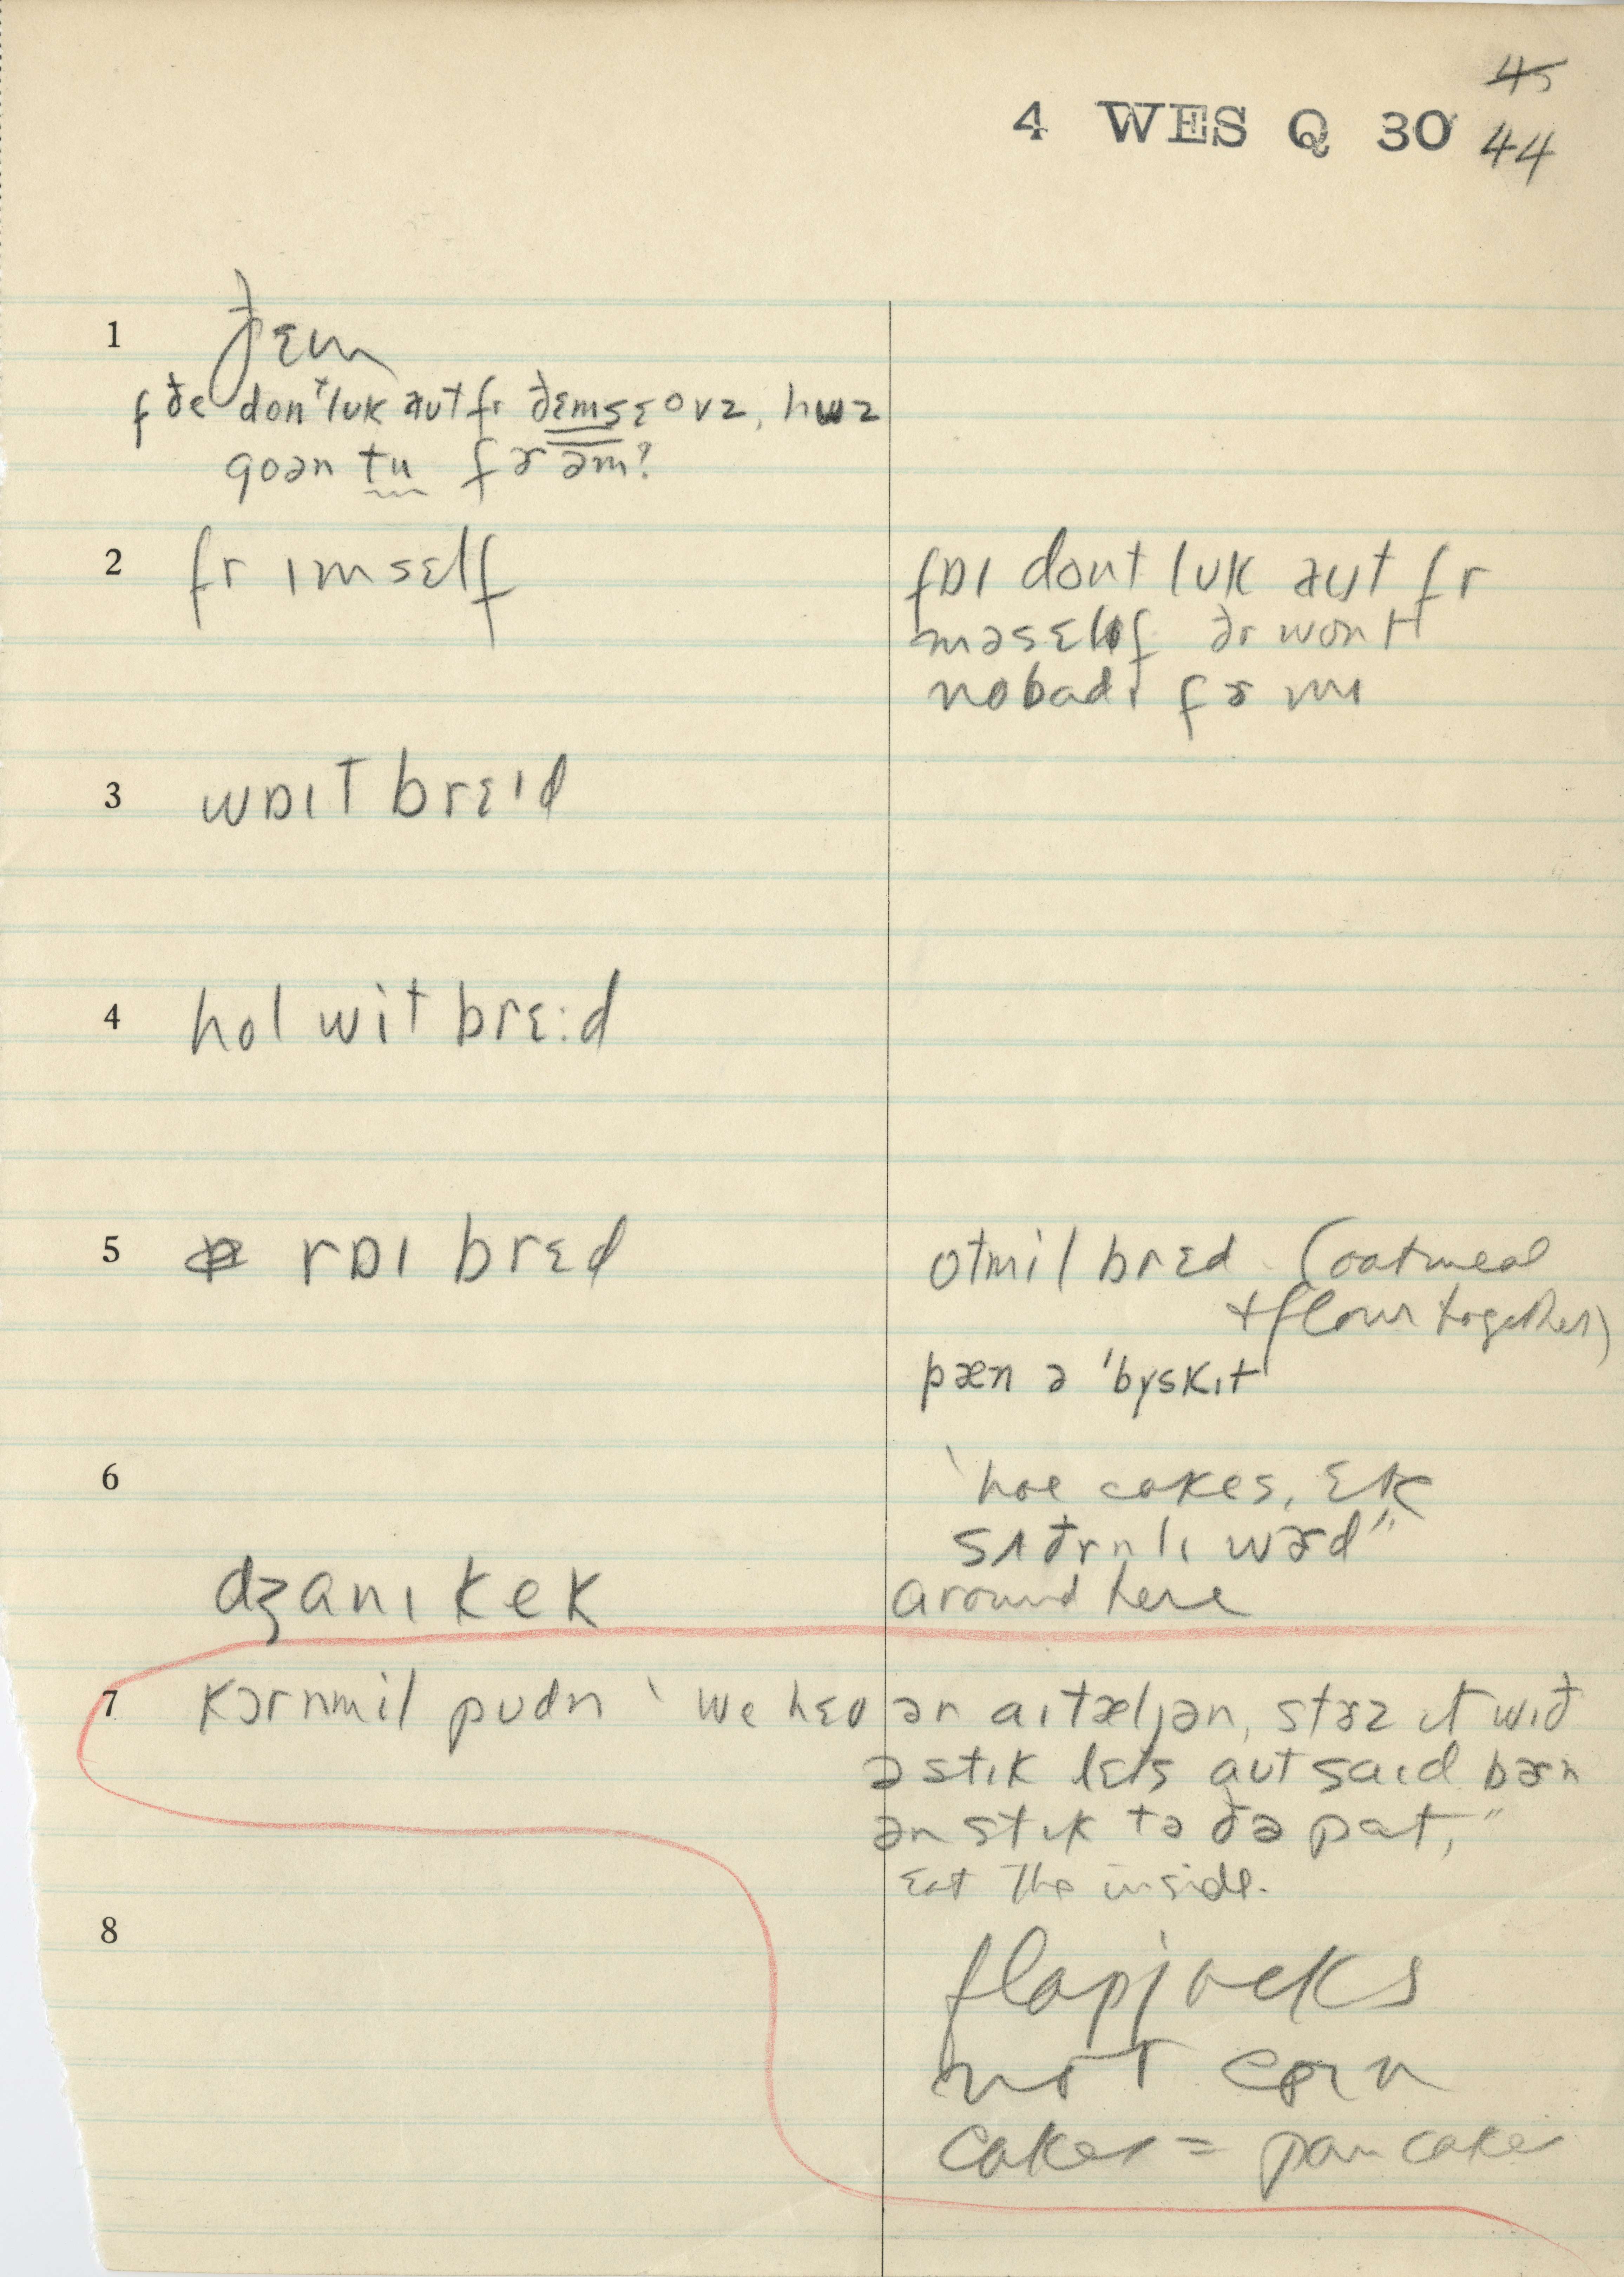 45
4 WES Q 30 44
1 ðɛm
f ðe don't lʊk aʊt fr ðɛmsɛovz, huz
goən tu fɚ əm?
2 fr ɪmsɛlf
fɒɪ dont lʊk aʊt fr
məsɛlf ðr wont
nobadɪ fɚ mɪ
3 wɒɪt brɛɪd
4 hol wit brɛ:d
5 rɒɪ brɛd
otmil brɛd (oatmeal
+ flour together)
pæn ə 'bɣskɪt
6 'hoe cakes,
sʌðrnlɪ wɚd"
dʒanɪ kek around here
7 kɔrnmil pʊdn ' we hɛv ən aɪtæljən, stɚz ɪt wɪð
ə stɪk lɛts aʊtsaɪd bɚn
ən stɪk tə ðə pat,"
Eat the inside.
8 flapjacks
not corn
cakes = pancakes